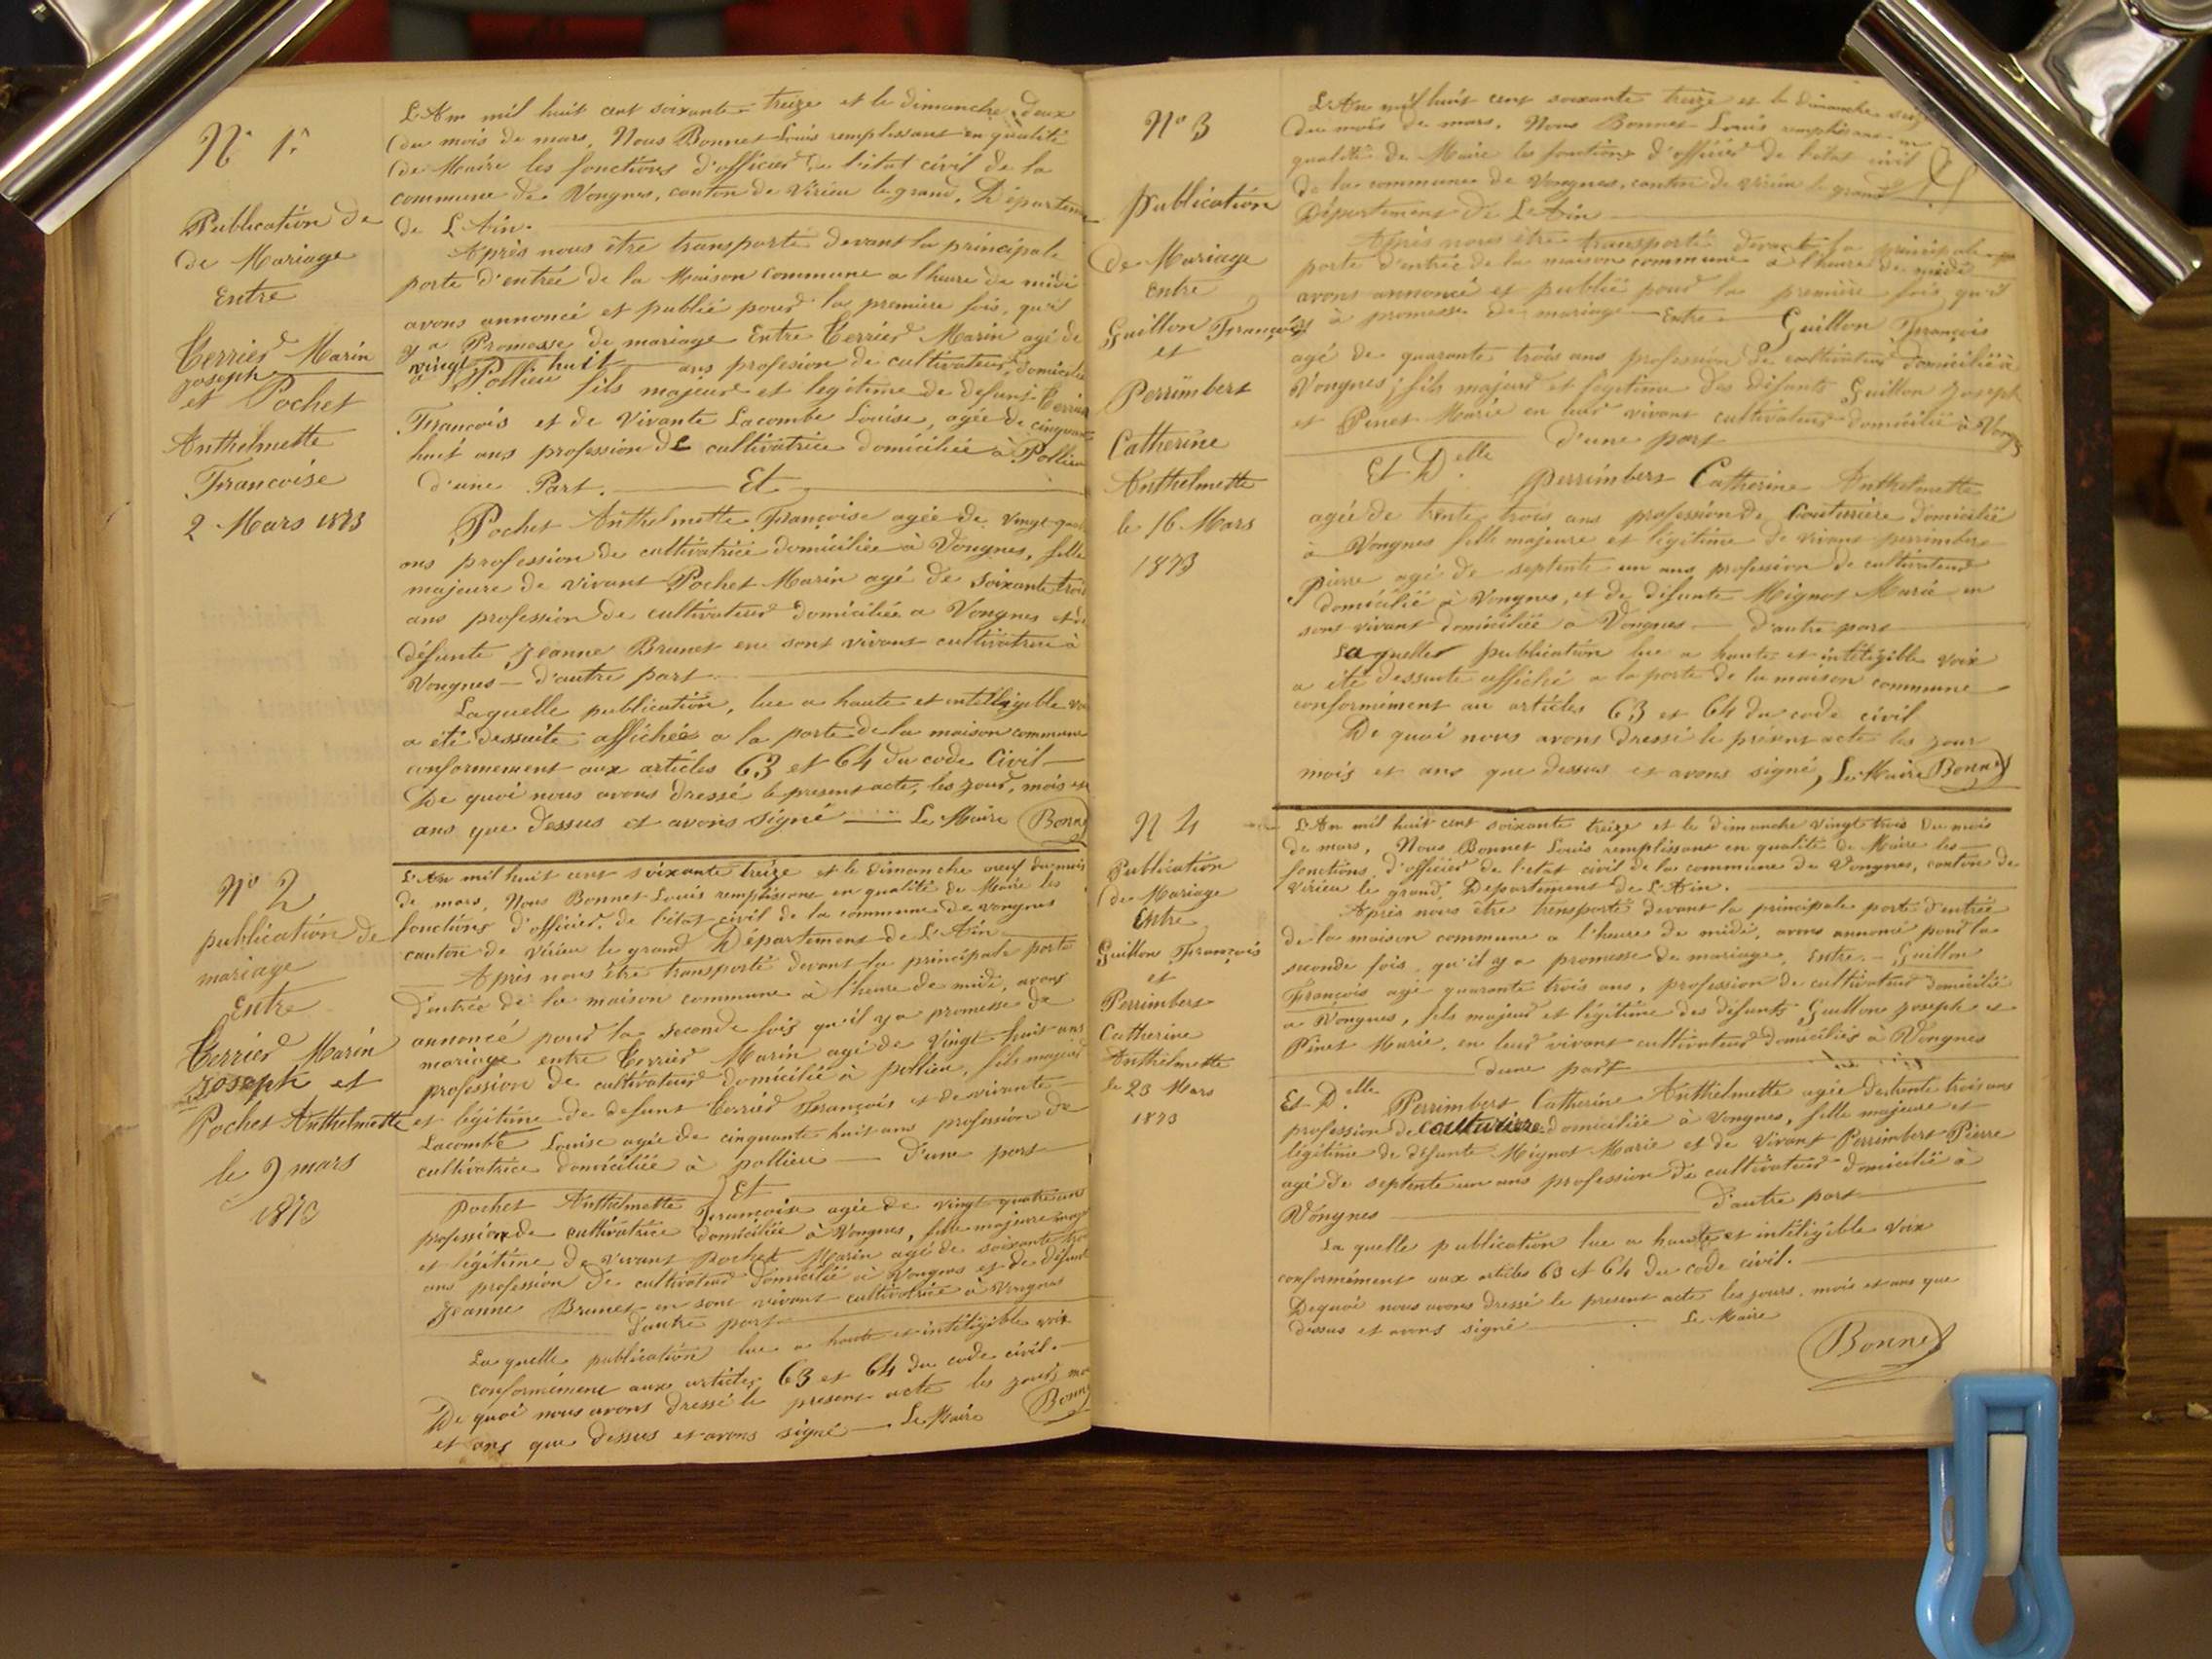 N° 1.
Publication de
de Mariage
Entre
Terrier Marin
Joseph
et Pochet
Anthelmette
Francoise
2 Mars 1873
L'An mil huit cent soixante-treize et le dimanche deux
du mois de mars, Nous Bonnet Louis remplissant en qualité
de Maire les fonctions d'officier de l'état civil de la
commune de Vongnes, canton de Virieu le grand, Départeme
de L'Ain.
Après nous être transporté devant la principale
porte d'entrée de la Maison Commune a l'heure de midi
avons annoncé et publié pour la première fois, qu'il
y a Promesse de mariage Entre Terrier Marin agé de
vingt huit ans profesion de cultivateur, domicilié
a Pollieu fils majeur et legitime de defunt Terrier
Francois et de Vivante Lacombe Louise, agée de cinquante
huit ans profession de cultivatrice domiciliée à Pollieu
d'une Part. Et
Pochet Anthelmette Françoise agée de vingt-quat
ans profession de cultivatrice domiciliée à Vongnes, fille
majeure de vivant Pochet Marin agé de soixante trois
ans profession de cultivateur domiciliée a Vongnes et de
défunte Jeanne Brunet en sont vivant cultivatrice à
Vongnes — d'autre part
Laquelle publication, lue a haute et intelligible voi
a été dessuite affichée a la porte de la maison commune
conformement aux articles 63 et 64 du code Civil —
De quoi nous avons dressé le present acte, les jour, mois et
ans que dessus et avons signé — Le Maire Bonnet
N° 2
publication de
mariage
Entre
Terrier Marin
Joseph et
Pochet Anthelmette
le 9 mars
1873
L'An mil huit cent soixante treize et le dimanche neuf du mois
de mars, Nous Bonnet Louis remplissant en qualité de Maire les
fonctions d'officier de l'état civil de la commune de vongnes
canton de Virieu le grand Département de L'Ain
Après nous être transporté devant la principale porte
d'entrée de la maison commune à l'heure de midi, avons
annoncé pour la seconde fois qu'il y a promesse de
mariage entre Terrier Marin agé de vingt huit ans
profession de cultivateur domicilié à pollieu, fils majeur
et légitime de defunt Terrier François et de vivante
Lacombe Louise agée de cinquante huit ans profession de
cultivatrice domiciliée à pollieu — d'une part
Et
Pochet Anthelmette Francoise agée de vingt quatre ans
profession de cultivatrice domiciliée à Vongnes, fille majeure
et légitime de vivant Pochet Marin agé de soixante trois
ans profession de cultivateur domicilié à Vongnes et de défunte
Jeanne Brunet en sont vivant cultivatrice à Vongnes
d'autre part
La quelle publication lue a haute et intéligible voix
conformément aux articles 63 et 64 du code civil. —
De quoi nous avons dressé le present acte les jour, moi
et ans que dessus et avons signé — Le Maire Bonnet
N° 3
publication
de Mariage
Entre
Guillon François
et
Perrimbert
Catherine
Anthelmette
le 16 Mars
1873
L'An mil huit cent soixante treize et le dimanche seize
du mois de mars, Nous Bonnet Louis remplissant en
qualité de Maire les fonctions d'officier de l'état civil
de la commune de Vongnes, canton de Virieu le grand
Département de L'Ain
Après nous être transporté devant la principale
porte d'entrée de la maison commune a l'heure de midi
avons annoncé et publié pour la première fois, qu'il
à promesse de mariage — Entre — Guillon François
agé de quarante trois ans profession de cultivateur domicilié à
Vongnes, fils majeur et légitime des défunts Guillon Joseph
et Pinet Marie en leur vivant cultivateur domicilié à Vongnes
d'une part
Et Delle Perrimbert Catherine Anthelmette
agée de trente trois ans profession de Couturière domicilié
à Vongnes fille majeure et légitime de vivant perrimbert
Pierre agé de septente un ans profession de cultivateur
domicilié à Vongnes, et de défunte Mignot Marie en
sont vivant domiciliée a Vongnes — d'autre part
La quelle publication lue a haute et intéligible voix
a été dessuite affiché a la porte de la maison commune
conformément au articles 63 et 64 du code civil
De quoi nous avons dressé le présent acte les jour
mois et ans que dessus et avons signé, Le Maire Bonnet
N 4
Publication
de Mariage
Entre
Guillon François
et
Perrimbert
Catherine
Anthelmette
le 23 Mars
1873
L'An mil huit cent soixante treize et le dimanche vingt trois du mois
de mars, Nous Bonnet Louis remplissant en qualité de Maire les
fonctions d'officier de l'état civil de la commune de Vongnes, canton de
Virieu le grand, Departement de L'Ain.
Après nous être transporté devant la principale porte d'entrée
de la maison commune a l'heure de midi, avons annoncé pour la
seconde fois, qu'il y a promesse de mariage, Entre — Guillon
François agé quarante trois ans, profession de cultivateur domicilié
a Vongnes, fils majeur et légitime des défunts Guillon Joseph et
Pinet Marie, en leur vivant cultivateur domiciliés à Vongnes
d'une part
Et Delle Perrimbert Catherine Anthelmette agée de trente trois ans
profession de couturière domiciliée à Vongnes, fille majeure et
légitime de défunte Mignot Marie et de Vivant Perrimbert Pierre
agé de septente un ans profession de cultivateur domicilié à
Vongnes d'autre part
La quelle publication lue a haute et intéligible voix
conformément aux articles 63 et 64 du code civil.
De quoi nous avons dressé le present acte les jours, mois et ans que
dessus et avons signé Le Maire
Bonnet